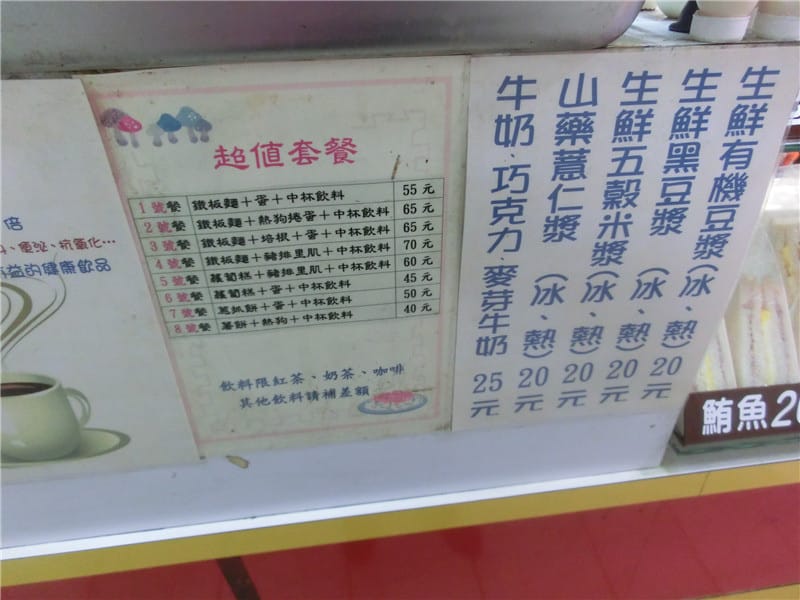 倍
、便泌、抗氧化…
益的健康飲品
超值套餐
1號餐 鐵板麵+蛋+中杯飲料 55元
2號餐 鐵板麵+熱狗捲蛋+中杯飲料 65元
3號餐 鐵板麵+培根+蛋+中杯飲料 65元
4號餐 鐵板麵+豬排里肌+中杯飲料 70元
5號餐 蘿蔔糕+豬排里肌+中杯飲料 60元
6號餐 蘿蔔糕+蛋+中杯飲料 45元
7號餐 蔥抓餅+蛋+中杯飲料 50元
8號餐 薯餅+熱狗+中杯飲料 40元
飲料限紅茶、奶茶、咖啡
其他飲料請補差額
生鮮有機豆漿(冰、熱)20元
生鮮黑豆漿(冰、熱)20元
生鮮五穀米漿(冰、熱)20元
山藥薏仁漿(冰、熱)20元
牛奶、巧克力、麥芽牛奶25元
鮪魚